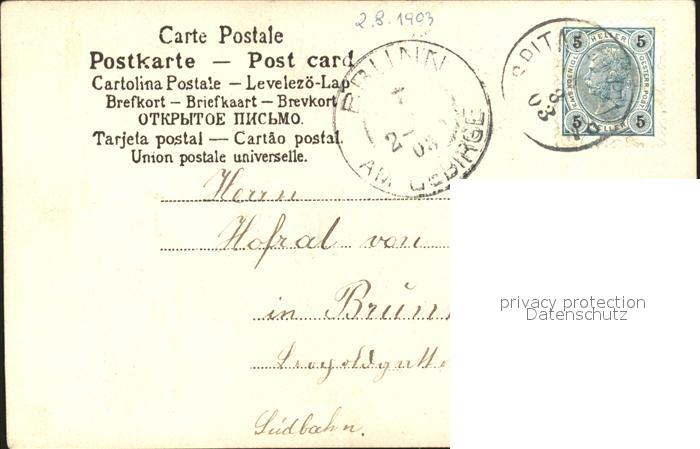 2.8.1903
Carte Postale
Postkarte — Post card
Cartolina Postale — Levelezö-Lap
Brefkort — Briefkaart — Brevkort
ОТКРЫТОЕ ПИСЬМО.
Tarjeta postal — Cartão postal.
Union postale universelle.
BRUNN
2
03
AM GEBIRGE
SPITA
8
03
5 HELLER 5
KAIS. KOENIGL. OESTERR. POST
5 HELLER 5
Herrn
Hofrat von
in Brunn
Südbahn.
privacy protection
Datenschutz